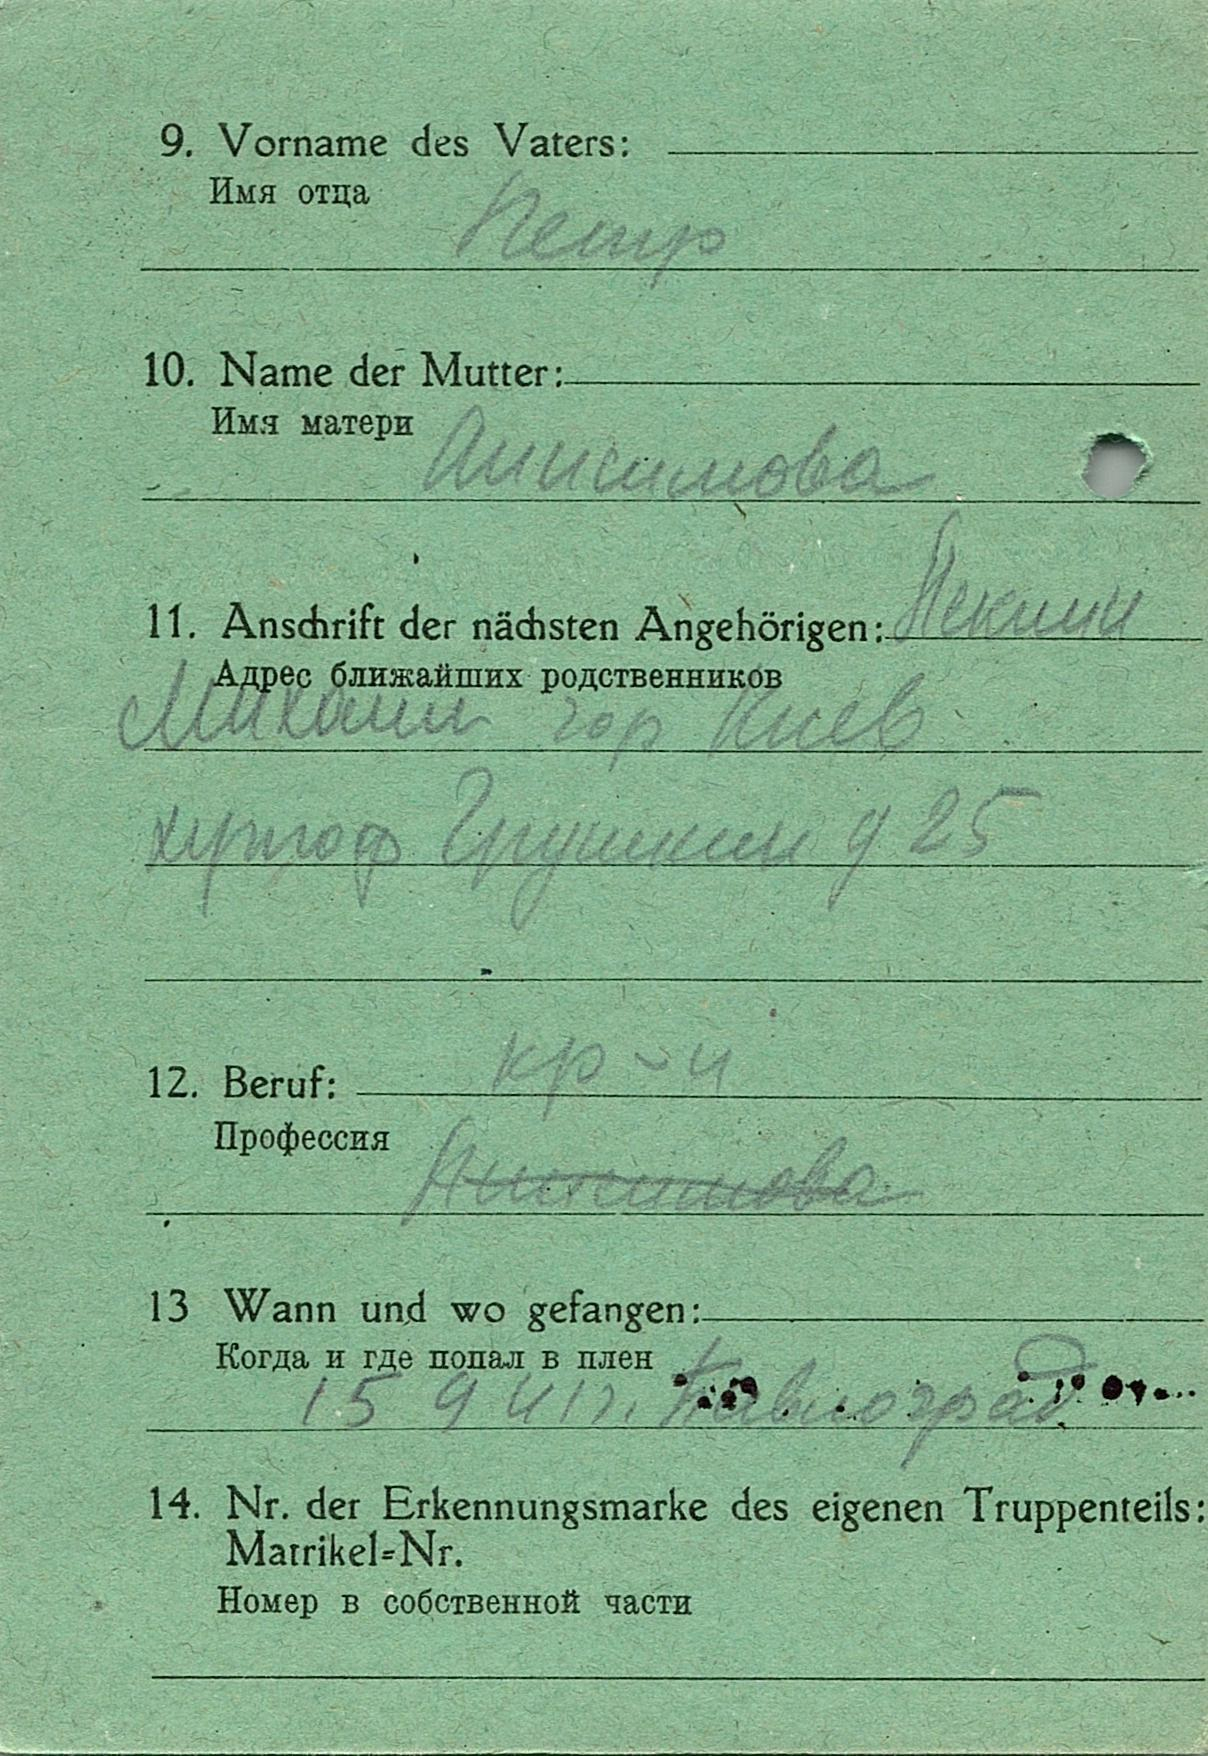 9. Vorname des Vaters:
Имя отца
Петр
10. Name der Mutter:
Имя матери
Анисимова
11. Anschrift der nächsten Angehörigen:
Адрес ближайших родственников
Михаил гор Киев
д 25
12. Beruf: кр-н
Профессия
13 Wann und wo gefangen:
Когда и где попал в плен
15 9 41 г. Павлоград
14. Nr. der Erkennungsmarke des eigenen Truppenteils:
Matrikel=Nr.
Номер в собственной части